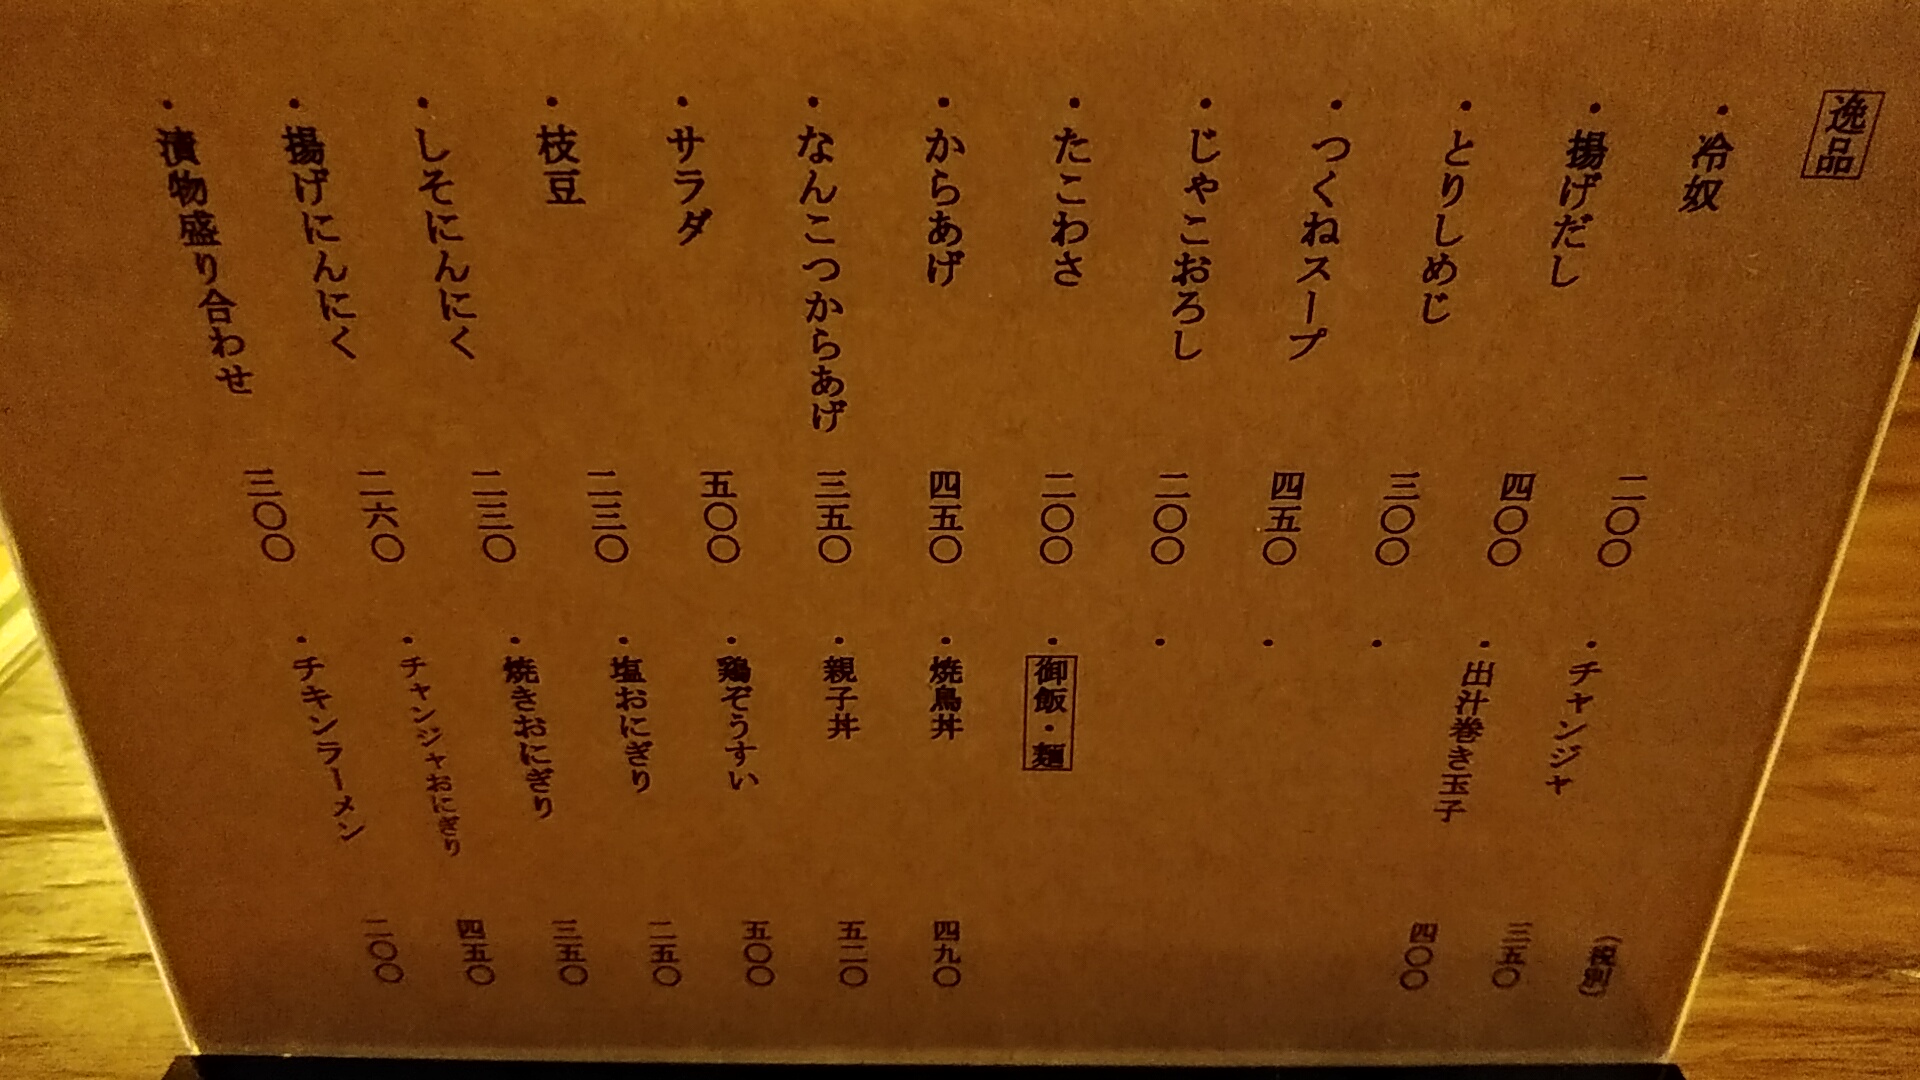 逸品
・冷奴 二〇〇
・揚げだし 四〇〇
・とりしめじ 三〇〇
・つくねスープ 四五〇
・じゃこおろし 二〇〇
・たこわさ 二〇〇
・からあげ 四五〇
・なんこつからあげ 三五〇
・サラダ 五〇〇
・枝豆 二三〇
・しそにんにく 二三〇
・揚げにんにく 二六〇
・漬物盛り合わせ 三〇〇
(税別)
・チャンジャ 三五〇
・出汁巻き玉子 四〇〇
・
・
・
・御飯・麺
・焼鳥丼 四九〇
・親子丼 五二〇
・鶏ぞうすい 五〇〇
・塩おにぎり 二五〇
・焼きおにぎり 三五〇
・チャンジャおにぎり 四五〇
・チキンラーメン 二〇〇